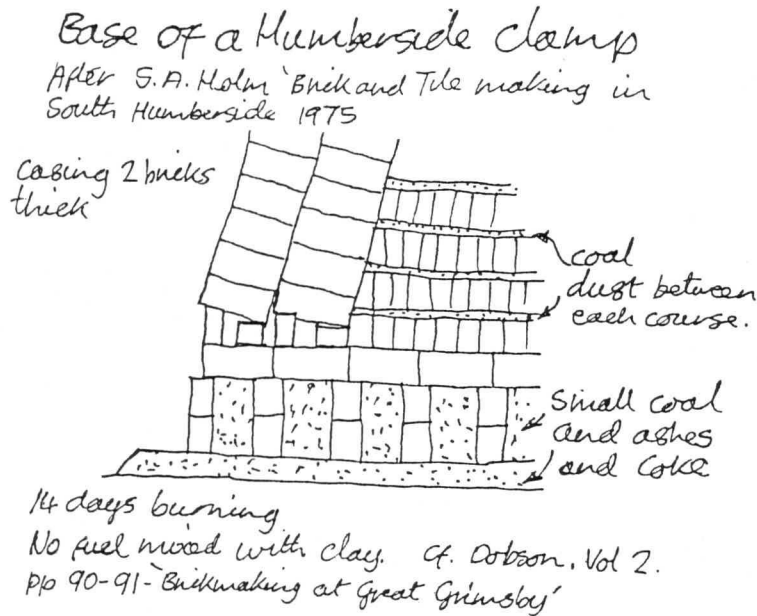 Base of a Humberside clamp
After S.A. Holm 'Brick and Tile making in
South Humberside 1975
Casing 2 bricks
thick
coal
dust between
each course.
Small coal
and ashes
and coke
14 days burning
No fuel mixed with clay. Cf. Dobson. Vol 2.
pp 90-91-'Brickmaking at Great Grimsby'